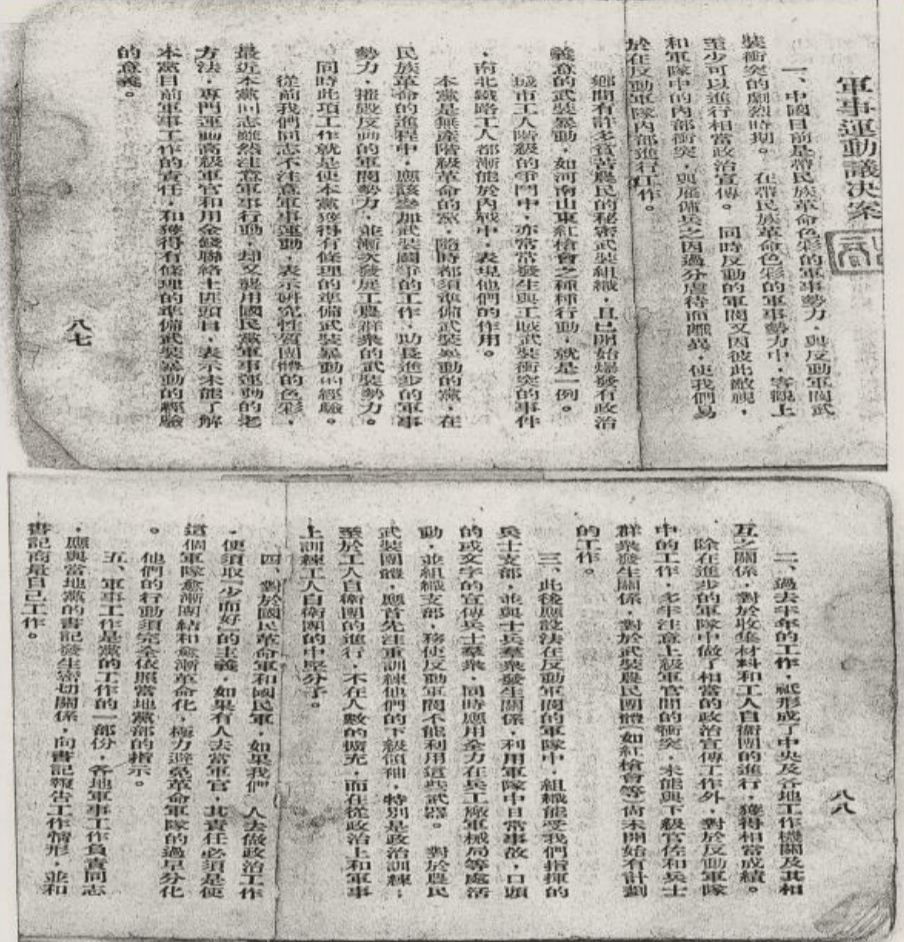 軍事運動議決案
一、中國目前是帶民族革命色彩的軍事勢力，與反動軍閥武
裝衝突的劇烈時期。在帶民族革命色彩的軍事勢力中，客觀上
至少可以進行相當政治宣傳。同時反動的軍閥又因彼此敵視，
和軍隊中的內部衝突，與雇傭兵之因過分虐待而離異，使我們易
於在反動軍隊內部進行工作。
鄉間有許多貧苦農民的秘密武裝組織，且已開始爆發有政治
義意的武裝暴動，如河南山東紅槍會之種種行動，就是一例。
城市工人階級的爭鬥中，亦常常發生與工賊武裝衝突的事件
，南北鐵路工人都漸能於內戰中，表現他們的作用。
本黨是無產階級革命的黨，隨時都須準備武裝暴動的黨，在
民族革命的進程中，應該參加武裝鬭爭的工作，助長進步的軍事
勢力，摧毀反動的軍閥勢力，並漸次發展工農群衆的武裝勢力。
同時此項工作就是使本黨獲得有條理的準備武裝暴動的經驗。
從前我們同志不注意軍事運動，表示研究性質團體的色彩，
最近本黨同志雖然注意軍事行動，却又襲用國民黨軍事運動的老
方法，專門運動高級軍官和用金錢聯絡土匪頭目，表示未能了解
本黨目前軍事工作的責任，和獲得有條理的準備武裝暴動的經驗
的意義。
八七
八八
二、過去半年的工作，祇形成了中央及各地工作機關及其相
互之關係，對於收集材料和工人自衛團的進行，獲得相當成績。
除在進步的軍隊中做了相當的政治宣傳工作外，對於反動軍隊
中的工作，多半注意上級軍官間的衝突，未能與下級官佐和兵士
群衆發生關係，對於武裝農民團體（如紅槍會等）尚未開始有計劃
的工作。
三、此後應設法在反動軍閥的軍隊中，組織能受我們指揮的
兵士支部，並與士兵羣衆發生關係，利用軍隊中日常事故，口頭
的或文字的宣傳兵士羣衆，同時應用全力在兵工廠軍械局等處活
動，並組織支部，務使反動軍閥不能利用這些武器。對於農民
武裝團體，應首先注重訓練他們的下級領袖，特別是政治訓練；
至於工人自衛團的進行，不在人數的擴充，而在從政治上和軍事
上訓練工人自衛團的中堅分子。
四、對於國民革命軍和國民軍，如果我們 人去做政治工作
，便須取「少而好」的主義，如果有人去當軍官，其責任必須是使
這個軍隊愈漸團結和愈漸革命化，極力避免革命軍隊的過早分化
。他們的行動須完全依照當地黨部的指示。
五、軍事工作是黨的工作的一部份，各地軍事工作負責同志
，應與當地黨的書記發生密切關係，向書記報告工作情形，並和
書記商量自己工作。